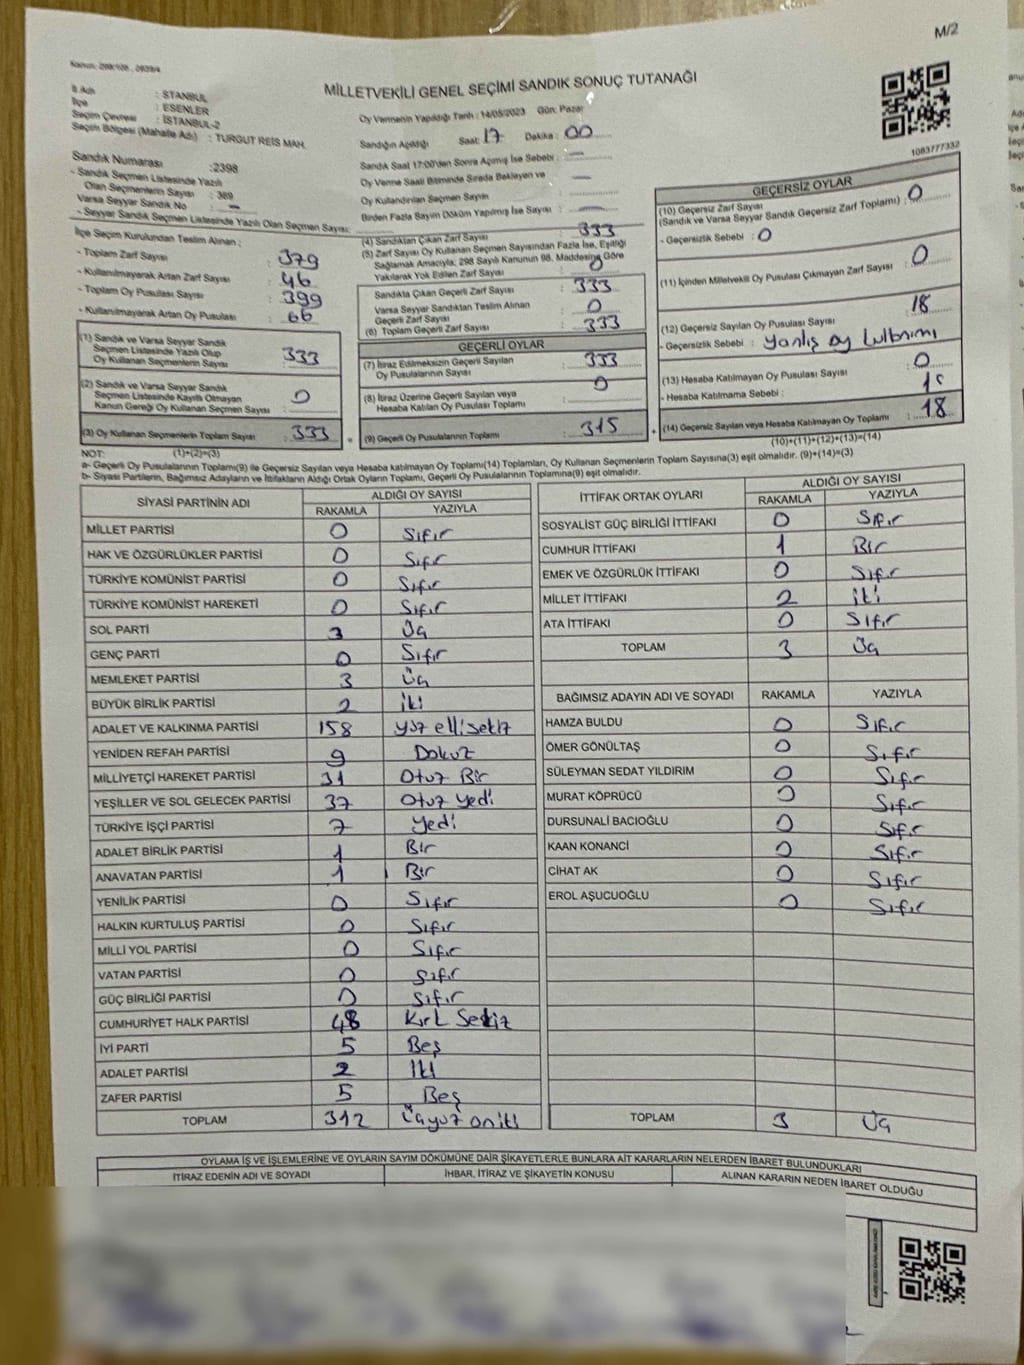 M/2
MİLLETVEKİLİ GENEL SEÇİMİ SANDIK SONUÇ TUTANAĞI
İl Adı : İSTANBUL
İlçe : ESENLER
Seçim Çevresi : İSTANBUL-2
Seçim Bölgesi (Mahalle Adı) : TURGUT REİS MAH.
Sandık Numarası :2398
- Sandık Seçmen Listesinde Yazılı
Olan Seçmenlerin Sayısı : 389
Varsa Seyyar Sandık No : —
- Seyyar Sandık Seçmen Listesinde Yazılı Olan Seçmen Sayısı:
Oy Vermenin Yapıldığı Tarih : 14/05/2023 Gün: Pazar
Sandığın Açıldığı Saat: 17 Dakika : 00
Sandık Saat 17:00'den Sonra Açılmış İse Sebebi : —
Oy Verme Saati Bitiminde Sırada Bekleyen ve —
Oy Kullandırılan Seçmen Sayısı
Birden Fazla Sayım Döküm Yapılmış İse Sayısı : —
1083777332
İlçe Seçim Kurulundan Teslim Alınan ;
- Toplam Zarf Sayısı : 379
- Kullanılmayarak Artan Zarf Sayısı : 46
- Toplam Oy Pusulası Sayısı : 399
- Kullanılmayarak Artan Oy Pusulası : 66
(1) Sandık ve Varsa Seyyar Sandık
Seçmen Listesinde Yazılı Olup
Oy Kullanan Seçmenlerin Sayısı : 333
(2) Sandık ve Varsa Seyyar Sandık
Seçmen Listesinde Kayıtlı Olmayan
Kanun Gereği Oy Kullanan Seçmen Sayısı : 0
(3) Oy Kullanan Seçmenlerin Toplam Sayısı : 333
(4) Sandıktan Çıkan Zarf Sayısı : 333
(5) Zarf Sayısı Oy Kullanan Seçmen Sayısından Fazla İse, Eşitliği
Sağlamak Amacıyla, 298 Sayılı Kanunun 98. Maddesine Göre
Yakılarak Yok Edilen Zarf Sayısı : 0
Sandıkta Çıkan Geçerli Zarf Sayısı : 333
Varsa Seyyar Sandıktan Teslim Alınan
Geçerli Zarf Sayısı : 0
(6) Toplam Geçerli Zarf Sayısı : 333
GEÇERLİ OYLAR
(7) İtiraz Edilmeksizin Geçerli Sayılan
Oy Pusulalarının Sayısı : 333
(8) İtiraz Üzerine Geçerli Sayılan veya
Hesaba Katılan Oy Pusulası Toplamı : 0
(9) Geçerli Oy Pusulalarının Toplamı : 315
GEÇERSİZ OYLAR
(10) Geçersiz Zarf Sayısı
(Sandık ve Varsa Seyyar Sandık Geçersiz Zarf Toplamı) : 0
- Geçersizlik Sebebi : 0
(11) İçinden Milletvekili Oy Pusulası Çıkmayan Zarf Sayısı : 0
(12) Geçersiz Sayılan Oy Pusulası Sayısı : 18
- Geçersizlik Sebebi : yanlış oy
(13) Hesaba Katılmayan Oy Pusulası Sayısı : 0
- Hesaba Katılmama Sebebi :
(14) Geçersiz Sayılan veya Hesaba Katılmayan Oy Toplamı : 18
NOT: (1)+(2)=(3)
(10)+(11)+(12)+(13)=(14)
a- Geçerli Oy Pusulalarının Toplamı(9) ile Geçersiz Sayılan veya Hesaba katılmayan Oy Toplamı(14) Toplamları, Oy Kullanan Seçmenlerin Toplam Sayısına(3) eşit olmalıdır. (9)+(14)=(3)
b- Siyasi Partilerin, Bağımsız Adayların ve İttifakların Aldığı Ortak Oyların Toplamı, Geçerli Oy Pusulalarının Toplamına(9) eşit olmalıdır.
SİYASİ PARTİNİN ADI ALDIĞI OY SAYISI
RAKAMLA YAZIYLA
MİLLET PARTİSİ 0 Sıfır
HAK VE ÖZGÜRLÜKLER PARTİSİ 0 Sıfır
TÜRKİYE KOMÜNİST PARTİSİ 0 Sıfır
TÜRKİYE KOMÜNİST HAREKETİ 0 Sıfır
SOL PARTİ 3 Üç
GENÇ PARTİ 0 Sıfır
MEMLEKET PARTİSİ 3 Üç
BÜYÜK BİRLİK PARTİSİ 2 iki
ADALET VE KALKINMA PARTİSİ 158 yüz elli sekiz
YENİDEN REFAH PARTİSİ 9 Dokuz
MİLLİYETÇİ HAREKET PARTİSİ 31 Otuz Bir
YEŞİLLER VE SOL GELECEK PARTİSİ 37 Otuz yedi
TÜRKİYE İŞÇİ PARTİSİ 7 yedi
ADALET BİRLİK PARTİSİ 1 Bir
ANAVATAN PARTİSİ 1 Bir
YENİLİK PARTİSİ 0 Sıfır
HALKIN KURTULUŞ PARTİSİ 0 Sıfır
MİLLİ YOL PARTİSİ 0 Sıfır
VATAN PARTİSİ 0 Sıfır
GÜÇ BİRLİĞİ PARTİSİ 0 Sıfır
CUMHURİYET HALK PARTİSİ 48 Kırk Sekiz
İYİ PARTİ 5 Beş
ADALET PARTİSİ 2 İki
ZAFER PARTİSİ 5 Beş
TOPLAM 312 Üçyüz oniki
İTTİFAK ORTAK OYLARI ALDIĞI OY SAYISI
RAKAMLA YAZIYLA
SOSYALİST GÜÇ BİRLİĞİ İTTİFAKI 0 Sıfır
CUMHUR İTTİFAKI 1 Bir
EMEK VE ÖZGÜRLÜK İTTİFAKI 0 Sıfır
MİLLET İTTİFAKI 2 iki
ATA İTTİFAKI 0 Sıfır
TOPLAM 3 Üç
BAĞIMSIZ ADAYIN ADI VE SOYADI RAKAMLA YAZIYLA
HAMZA BULDU 0 Sıfır
ÖMER GÖNÜLTAŞ 0 Sıfır
SÜLEYMAN SEDAT YILDIRIM 0 Sıfır
MURAT KÖPRÜCÜ 0 Sıfır
DURSUNALİ BACIOĞLU 0 Sıfır
KAAN KONANCİ 0 Sıfır
CİHAT AK 0 Sıfır
EROL AŞUCUOĞLU 0 Sıfır
TOPLAM 3 Üç
OYLAMA İŞ VE İŞLEMLERİNE VE OYLARIN SAYIM DÖKÜMÜNE DAİR ŞİKAYETLERLE BUNLARA AİT KARARLARIN NELERDEN İBARET BULUNDUKLARI
İTİRAZ EDENİN ADI VE SOYADI İHBAR, İTİRAZ VE ŞİKAYETİN KONUSU ALINAN KARARIN NEDEN İBARET OLDUĞU